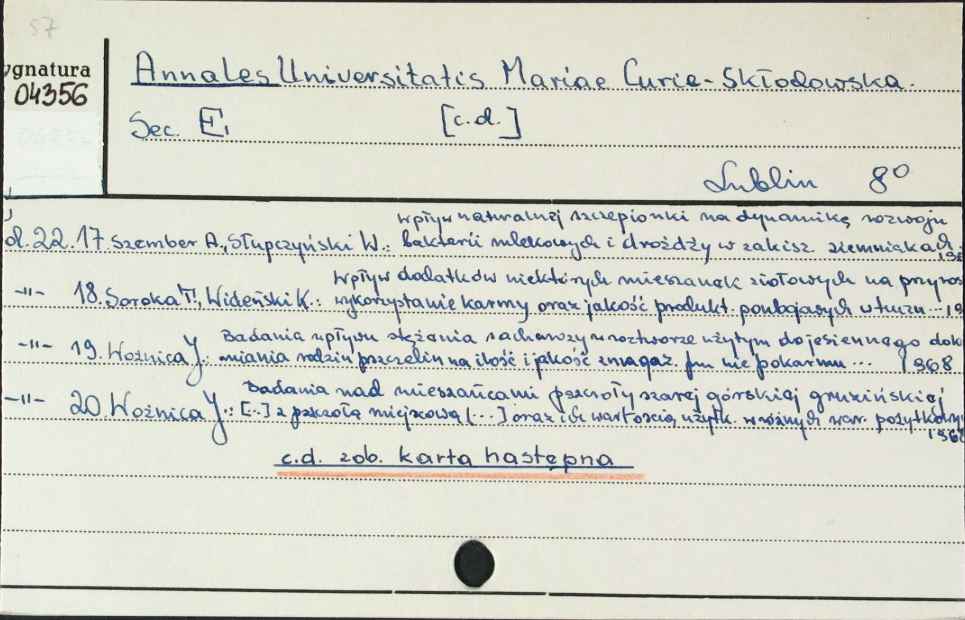 57
ygnatura
04356
Annales Universitatis Mariae Curie-Skłodowska.
Sec. E, [c.d.]
Lublin 8°
Wpływ naturalnej szczepionki na dynamikę rozwoju
ol. 22. 17. Szember A., Słupczyński W.: bakterii mlekowych i drożdży w zakisz. ziemniakach
Wpływ dodatków niektórych mieszanek ziołowych na przyros
-"- 18. Soroka T., Wideński K.: wykorzystanie karmy oraz jakość produkt. poubojowych u tuczn... 19
Badania wpływu stężenia sacharozy w roztworze użytym do jesiennego dok
-"- 19. Woźnica J.: miania rodzin pszczelin na ilość i jakość zmagaz. pokarmu... 1968
Badania nad mieszańcami pszczoły szarej górskiej gruzińskiej
-"- 20. Woźnica J.: [...] z pszczołą miejscową [...] oraz ich wartością użytk. w różnych war. pożytkowy
1968
c.d. zob. karta następna